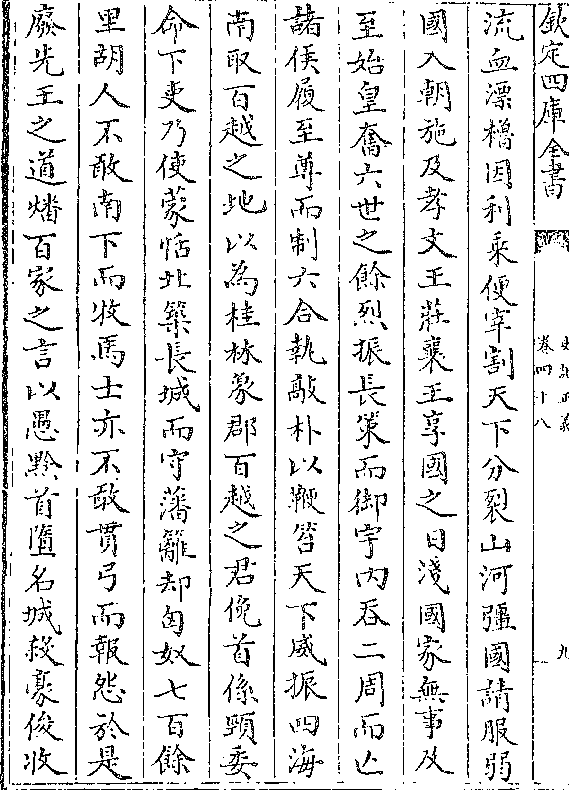 欽定四庫全書
史記正義
卷四十八
九
流血漂櫓因利乘便宰割天下分裂山河彊國請服弱
國入朝施及孝文王莊襄王享國之日淺國家無事及
至始皇奮六世之餘烈振長策而御宇內吞二周而亡
諸侯履至尊而制六合執敲朴以鞭笞天下威振四海
南取百越之地以為桂林象郡百越之君俛首係頸委
命下吏乃使蒙恬北築長城而守藩籬却匈奴七百餘
里胡人不敢南下而牧馬士亦不敢貫弓而報怨於是
廢先王之道燔百家之言以愚黔首隳名城殺豪俊收